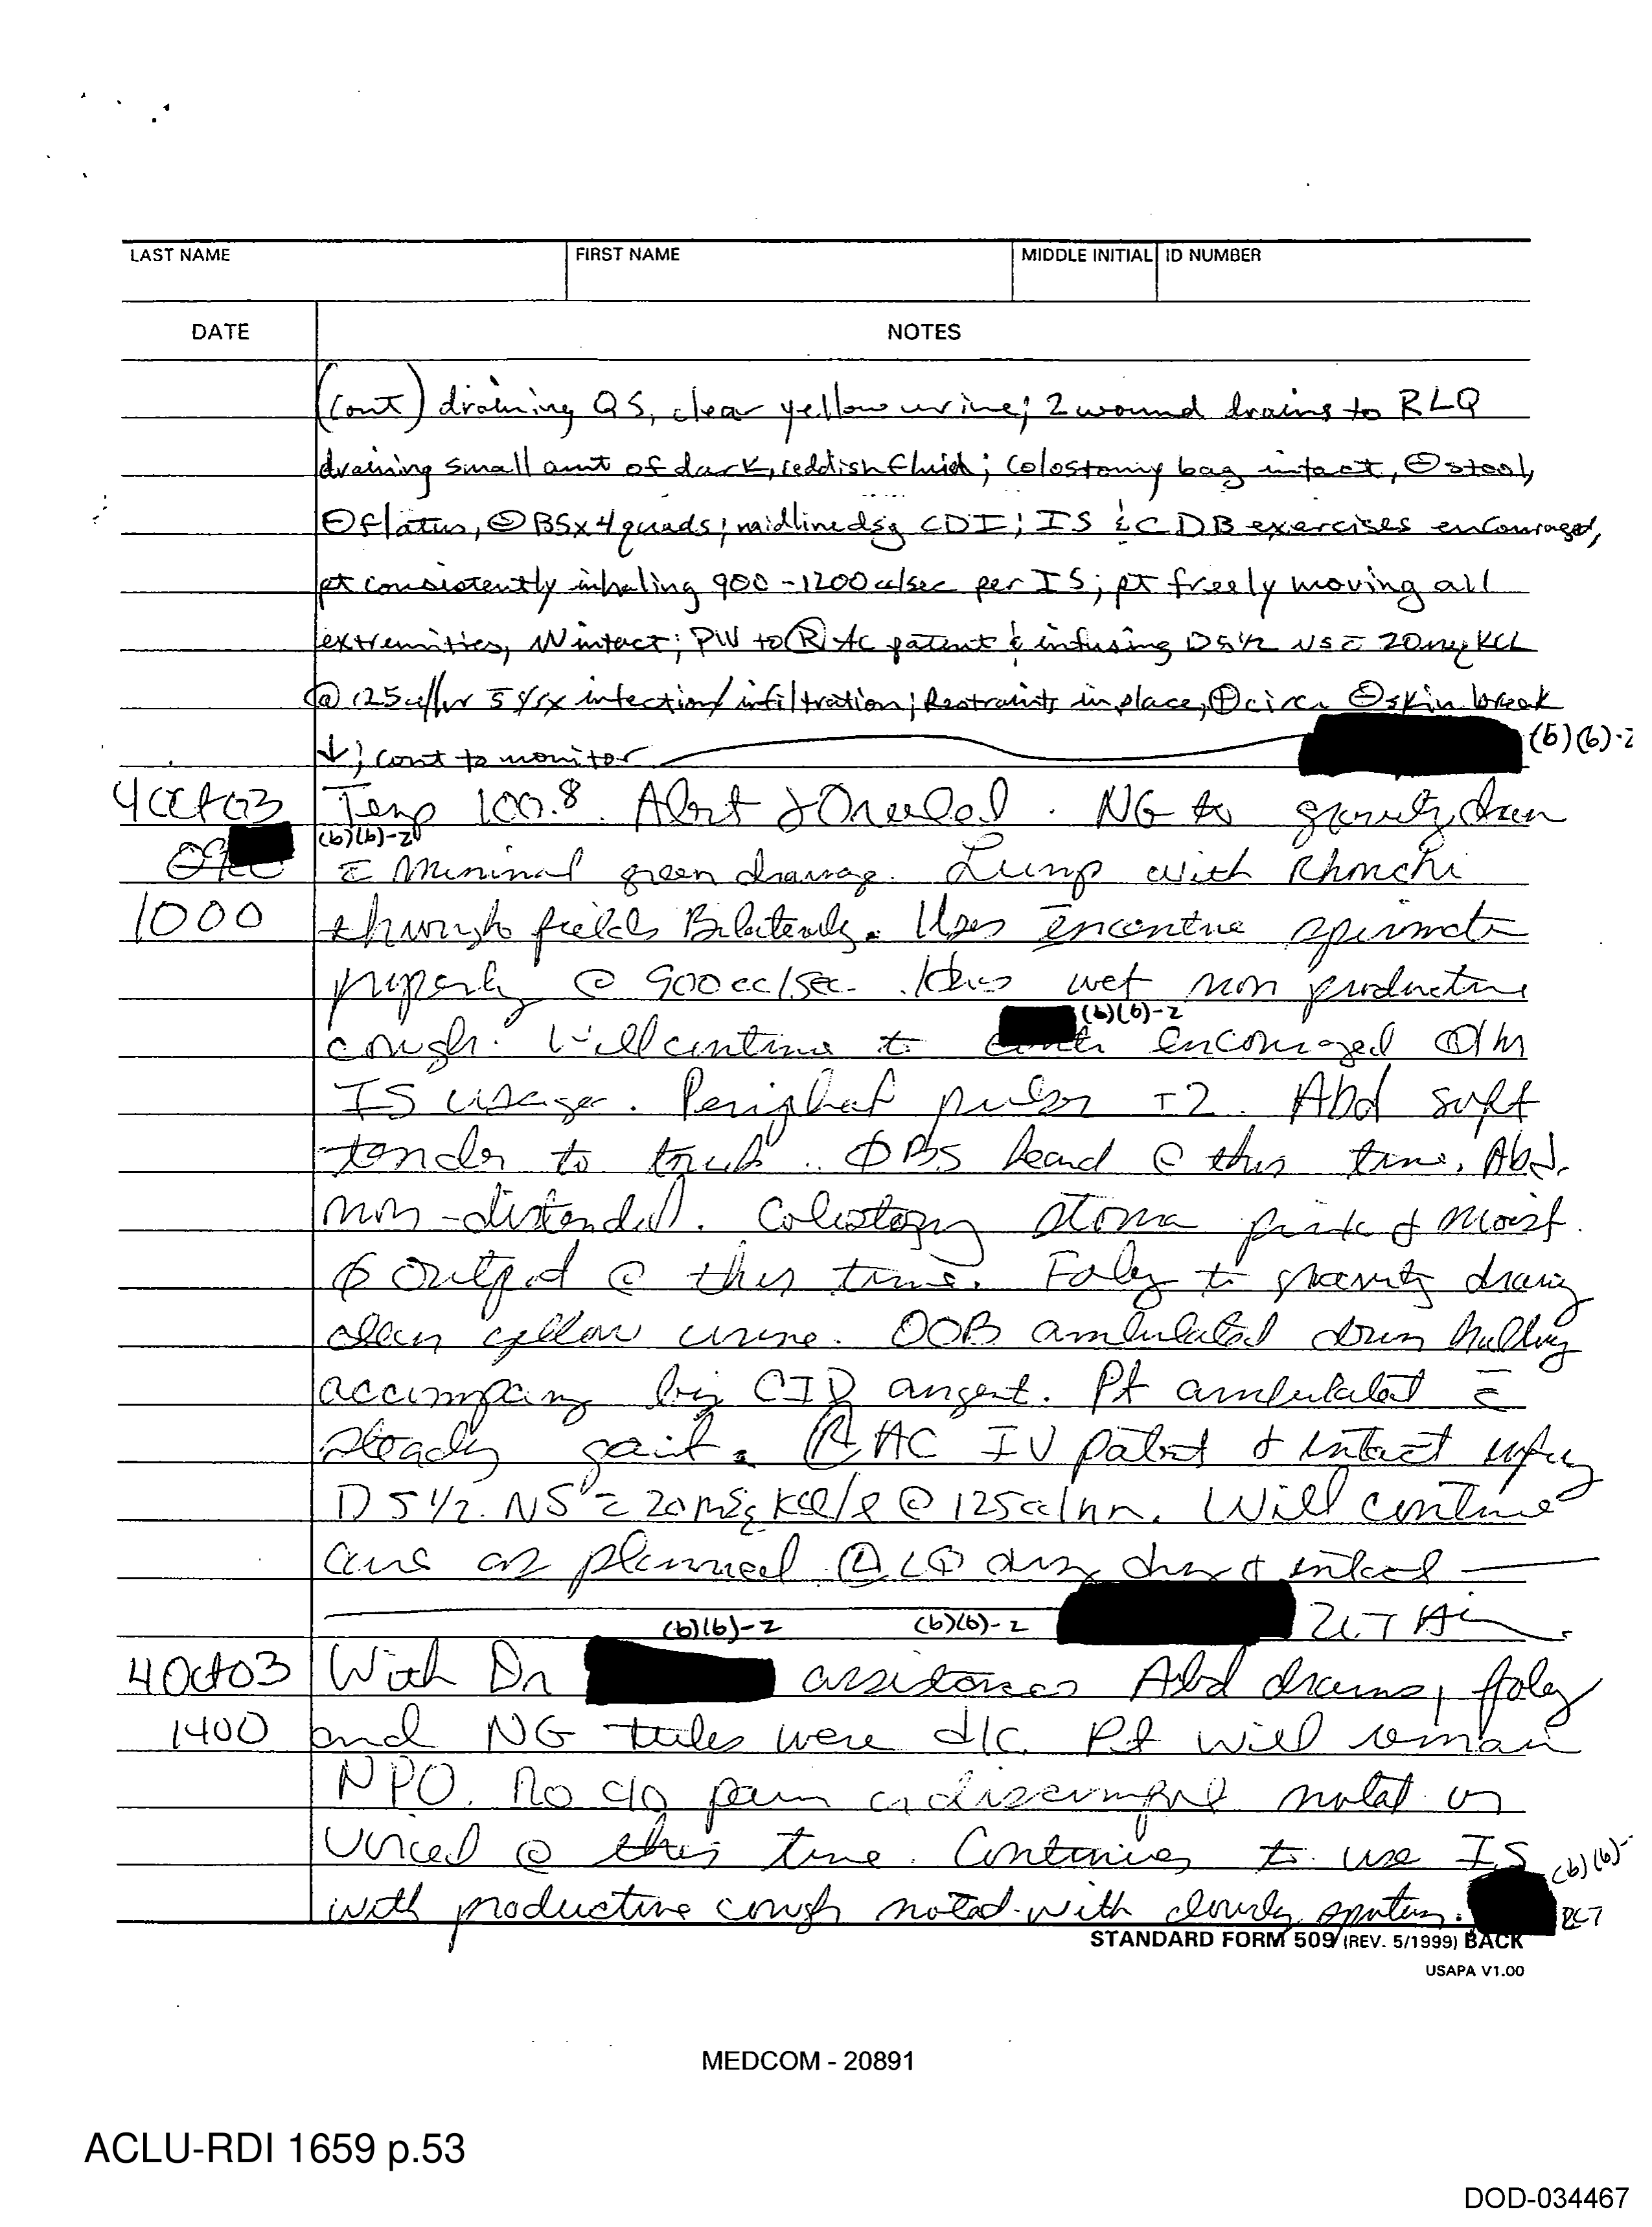 LAST NAME FIRST NAME MIDDLE INITIAL ID NUMBER
DATE NOTES
(cont) draining QS, clear yellow urine; 2 wound drains to RLQ
draining small amt of dark, reddish fluid; colostomy bag intact, ⊖ stool,
⊖ flatus, ⊖ BS x 4 quads; midline dsg CDI; IS & CDB exercises encouraged,
pt consistently inhaling 900-1200 cc/sec per IS; pt freely moving all
extremities, NV intact; PIV to Ⓡ AC patent & infusing D5 1/2 NS c̄ 20 meq KCL
@ 125cc/hr s̄ s/sx infection/infiltration; Restraints in place, ⊕ circ ⊖ skin break
↓; cont to monitor (b)(6)-2
4 Oct 03 Temp 100.8. Alert & Oriented. NG to gravity drain
(b)(6)-2
c̄ minimal green drainage. Lungs with Rhonchi
1000 through fields Bilaterally. Uses encentive spirometer
properly @ 900cc/sec. Has wet non productive
(b)(6)-2
cough. Will continue to encouraged
IS usage. Peripheal pulses +2. Abd soft
tender to touch. ∅ BS heard @ this time. Abd.
non-distended. Colostomy stoma pink & moist.
∅ output @ this time. Foley to gravity draing
clear yellow urine. OOB ambulated down hallway
accompany by CID angent. Pt ambulated c̄
steady gait. Ⓡ AC IV patent & intact infusing
D5 1/2 NS c̄ 20 mEq KCl/l @ 125cc/hr. Will continue
care as planned. LQ dsg dry & intact
(b)(6)-2 (b)(6)-2
4 Oct 03 With Dr assistances Abd drains, foley
1400 and NG tubes were d/c. Pt will remain
NPO. No c/o pain or discomfort noted or
voiced @ this time. Continues to use IS
(b)(6)-
with productive cough noted with cloudy sputum.
STANDARD FORM 509 (REV. 5/1999) BACK
USAPA V1.00
MEDCOM - 20891
ACLU-RDI 1659 p.53
DOD-034467